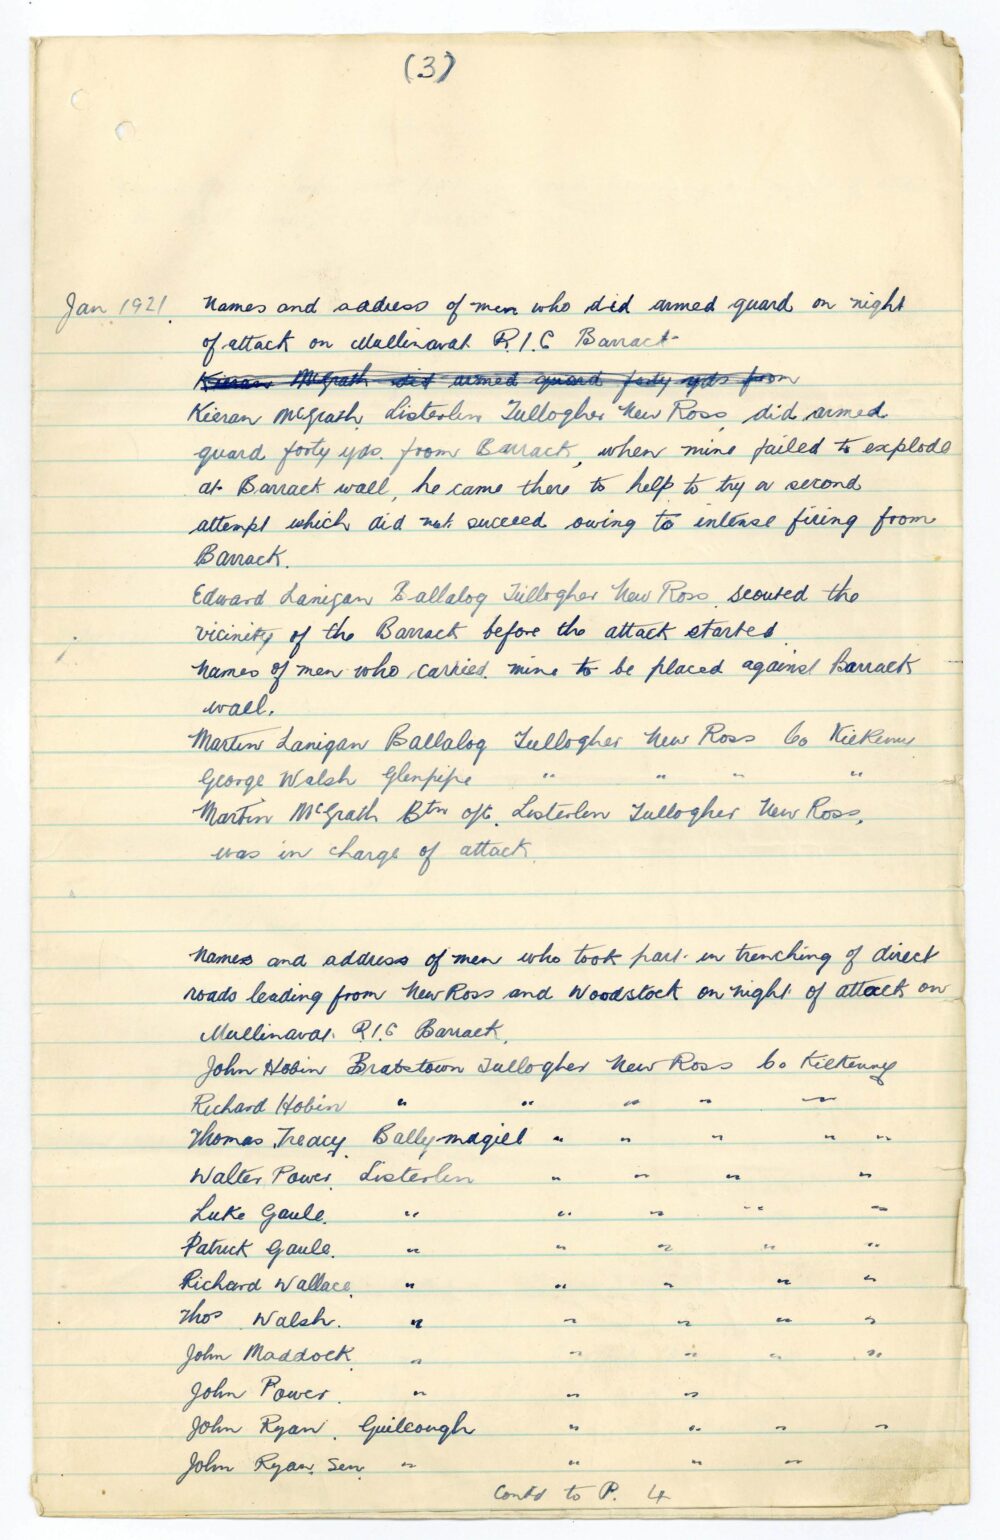 (3)
Jan 1921. Names and address of men who did armed guard on night
of attack on Mullinavat R.I.C Barrack
Kieran McGrath did armed guard forty yds from
Kieran McGrath, Listerlin Tullogher New Ross, did armed
guard forty yds. from Barrack, when mine failed to explode
at Barrack wall, he came there to help to try a second
attempt which did not succeed owing to intense firing from
Barrack.
Edward Lanigan Ballalog Tullogher New Ross, scouted the
vicinity of the Barrack before the attack started.
Names of men who carried mine to be placed against Barrack
wall.
Martin Lanigan Ballalog Tullogher New Ross Co Kilkenny
George Walsh Glenpipe " " " "
Martin McGrath Btn o/c. Listerlin Tullogher New Ross,
was in charge of attack.
Names and address of men who took part in trenching of direct
roads leading from New Ross and Woodstock on night of attack on
Mullinavat R.I.C Barrack.
John Hobin Brabstown Tullogher New Ross Co Kilkenny
Richard Hobin " " " " "
Thomas Treacy. Ballymagill " " " " "
Walter Power. Listerlin " " " "
Luke Gaule. " " " " "
Patrick Gaule. " " " " "
Richard Wallace. " " " " "
Thos Walsh. " " " " "
John Maddock. " " " " "
John Power. " " "
John Ryan. Guilcough " " " "
John Ryan. Sen. " " " "
Contd to P. 4